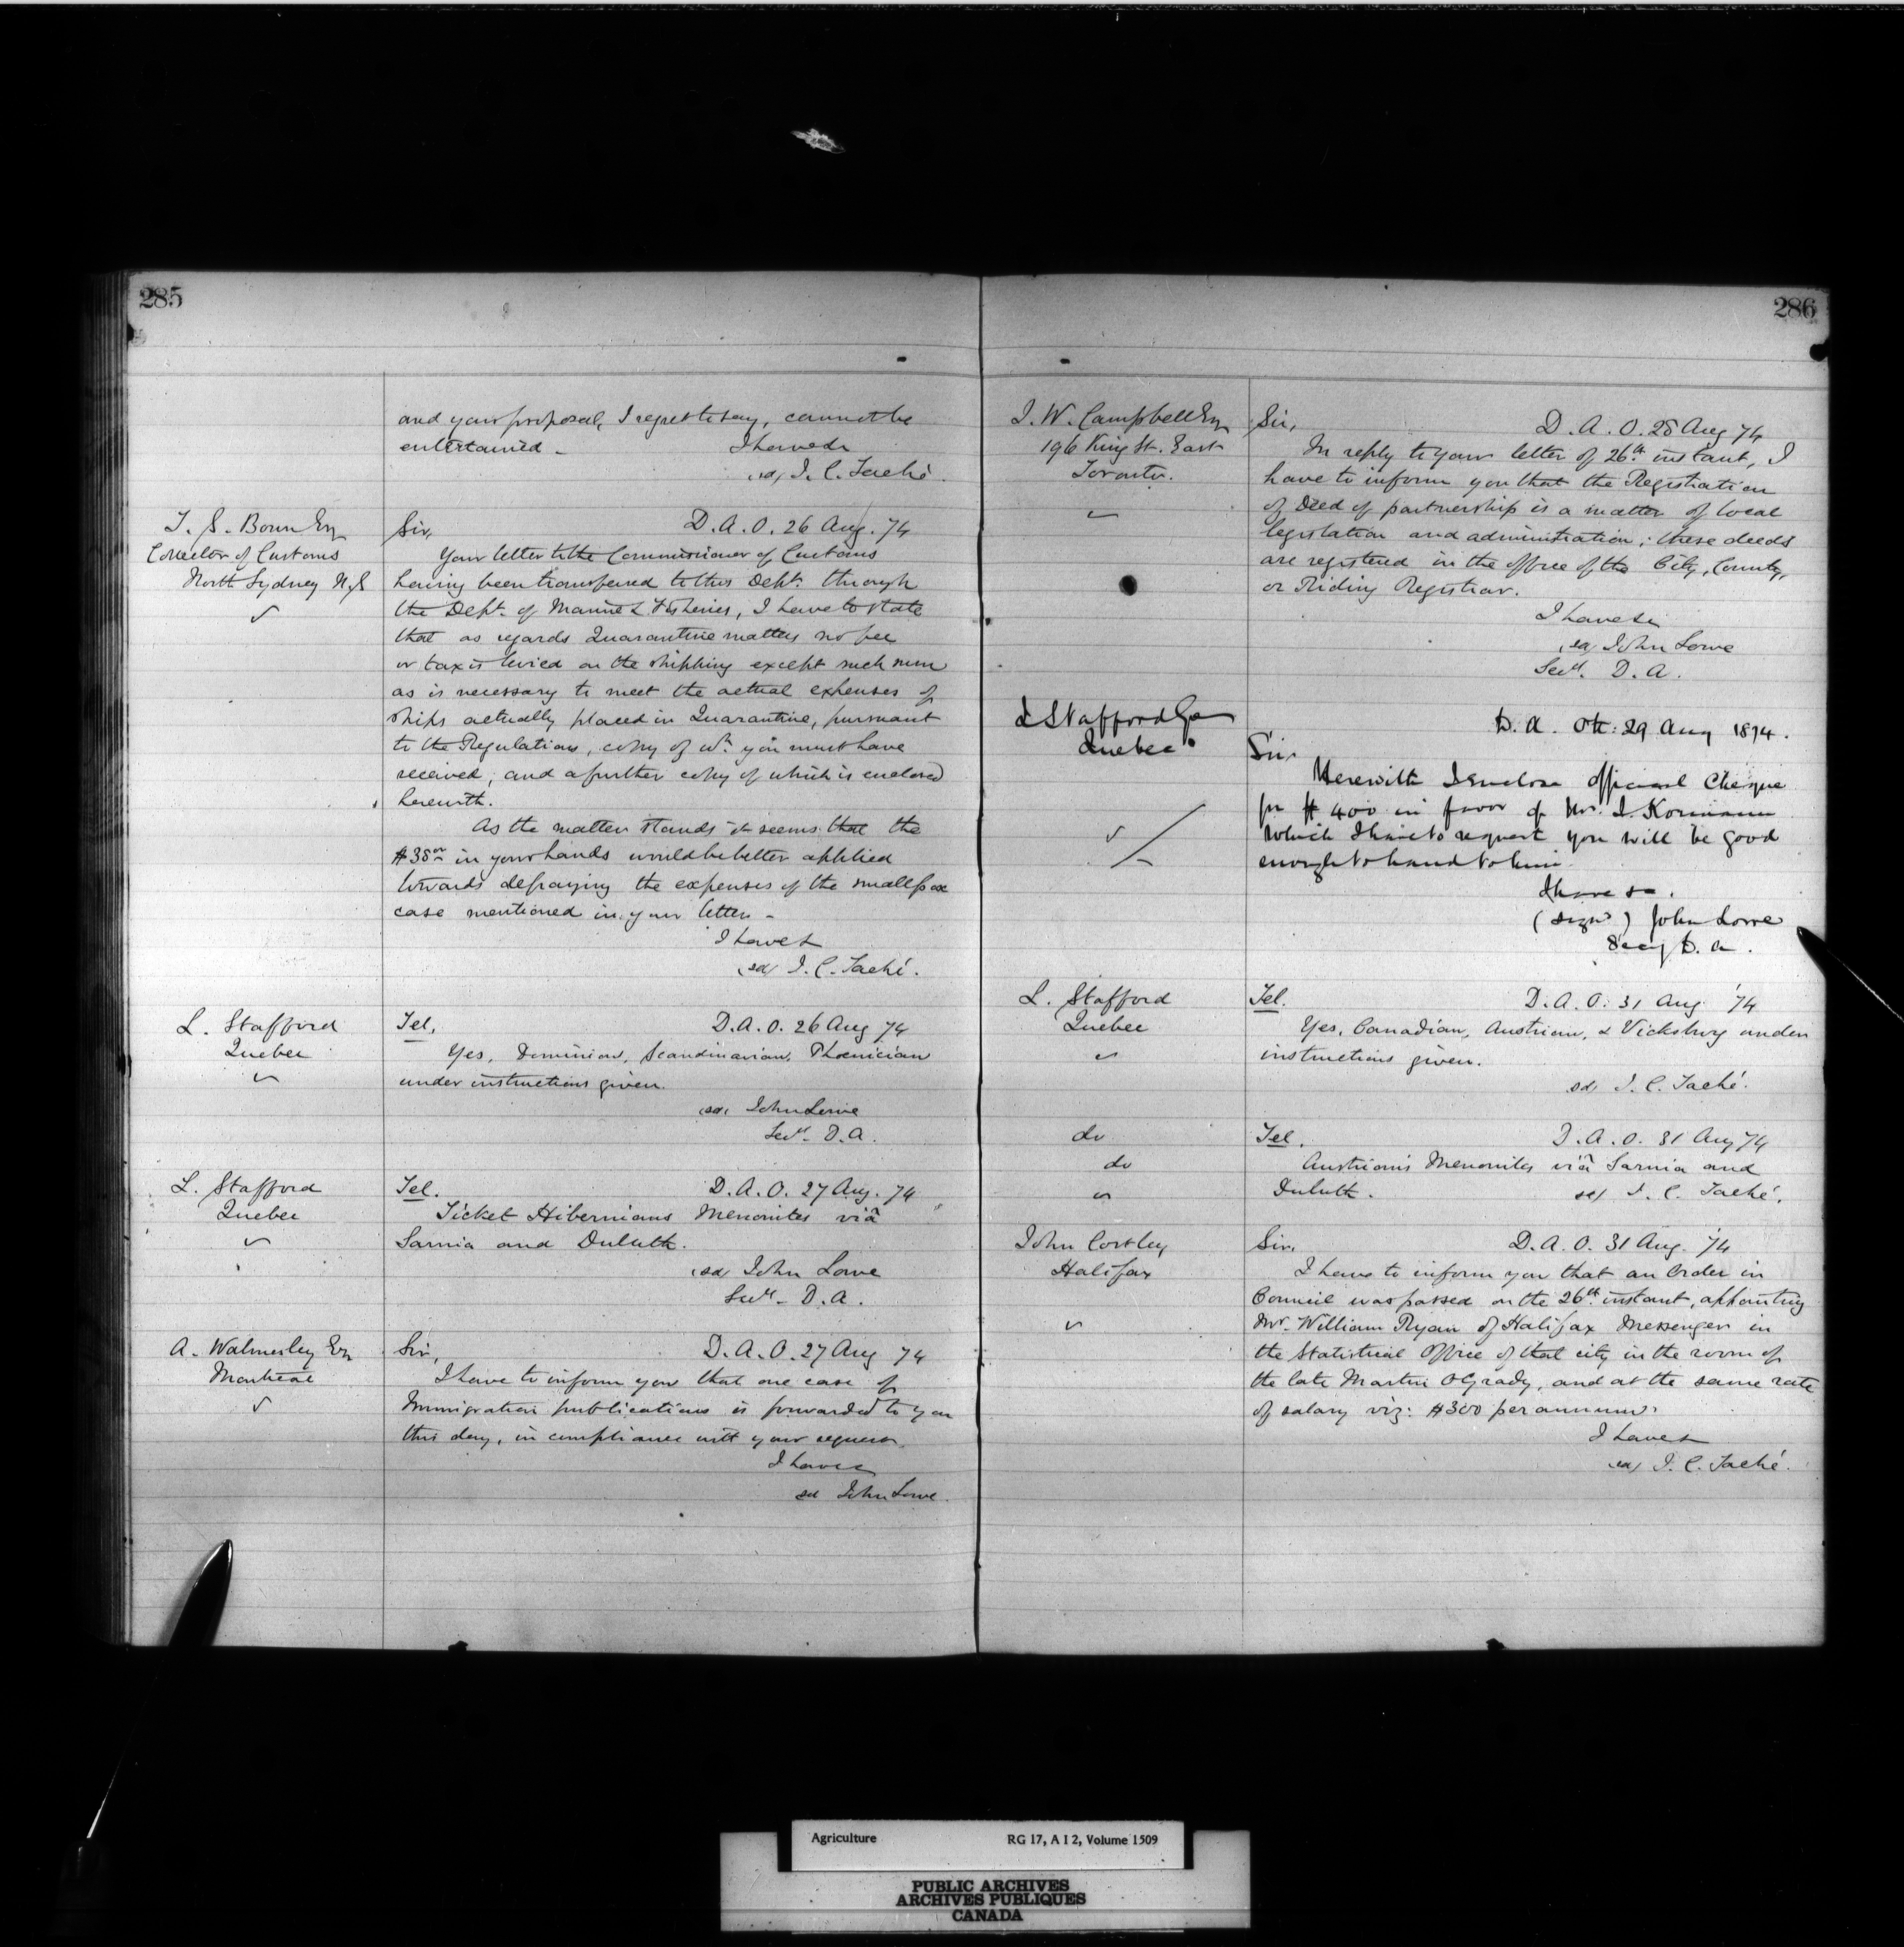 285
and your proposal, I regret to say, cannot be
entertained - I have &c
(sd) J. C. Taché.
Collector of Customs
North Sydney N.S
Sir, D. A. O. 26 Aug. 74
Your letter to the Commissioner of Customs
having been transferred to this Dept. through
the Dept. of Marine & Fisheries, I have to state
that as regards Quarantine matters no fee
or tax is levied on the shipping except such sum
as is necessary to meet the actual expenses of
ships actually placed in Quarantine, pursuant
to the Regulations, copy of wh. you must have
received, and a further copy of which is enclosed
herewith.
As the matter stands it seems that the
$38 00 in your hands would be better applied
towards defraying the expenses of the smallpox
case mentioned in your letter -
I have &
(sd) J. C. Taché.
L. Stafford
Quebec
Tel. D. A. O. 26 Aug 74
Yes, Dominion, Scandinavian, Phœnician
under instructions given.
(sd) John Lowe
Secy. D. A.
L. Stafford
Quebec
Tel. D. A. O. 27 Aug. 74
Ticket Hibernians Menonites viâ
Sarnia and Duluth.
(sd) John Lowe
Secy. D. A.
A. Walmesley Esq
Montreal
Sir, D. A. O. 27 Aug 74
I have to inform you that one case of
Immigration publications is forwarded to you
this day, in compliance with your request.
I have &
sd John Lowe.
286
J. W. Campbell Esq
196 King St. East
Toronto.
Sir, D. A. O. 28 Aug 74
In reply to your letter of 26th. instant, I
have to inform you that the Registration
of Deed of partnership is a matter of local
legislation and administration; these deeds
are registered in the office of the City, County,
or Riding Registrar.
I have &c
(sd) John Lowe
Secy. D. A.
L Stafford
Quebec
D. A. Ott: 29 Aug 1874.
Sir
Herewith I enclose official Cheque
for $400 in favor of Mr. J.
which I have to request you will be good
enough to hand to him
I have &c.
(Signd) John Lowe
Secy D. A.
L. Stafford
Quebec
Tel. D. A. O. 31 Aug '74
Yes, Canadian, Austrian, & Vicksburg under
instructions given.
sd) J. C. Taché.
do
do
Tel. D. A. O. 31 Aug 74
Austrian's Menonites viâ Sarnia and
Duluth. sd) J. C. Taché.
John Costley
Halifax
Sir, D. A. O. 31 Aug. '74
I have to inform you that an Order in
Council was passed on the 26th. instant, appointing
Mr. William Ryan of Halifax Messenger in
the Statistical Office of that city in the room of
the late Martin O'Grady, and at the same rate
of salary viz: $300 per annum.
I have &
(sd) J. C. Taché.
Agriculture RG 17, A I 2, Volume 1509
PUBLIC ARCHIVES
ARCHIVES PUBLIQUES
CANADA